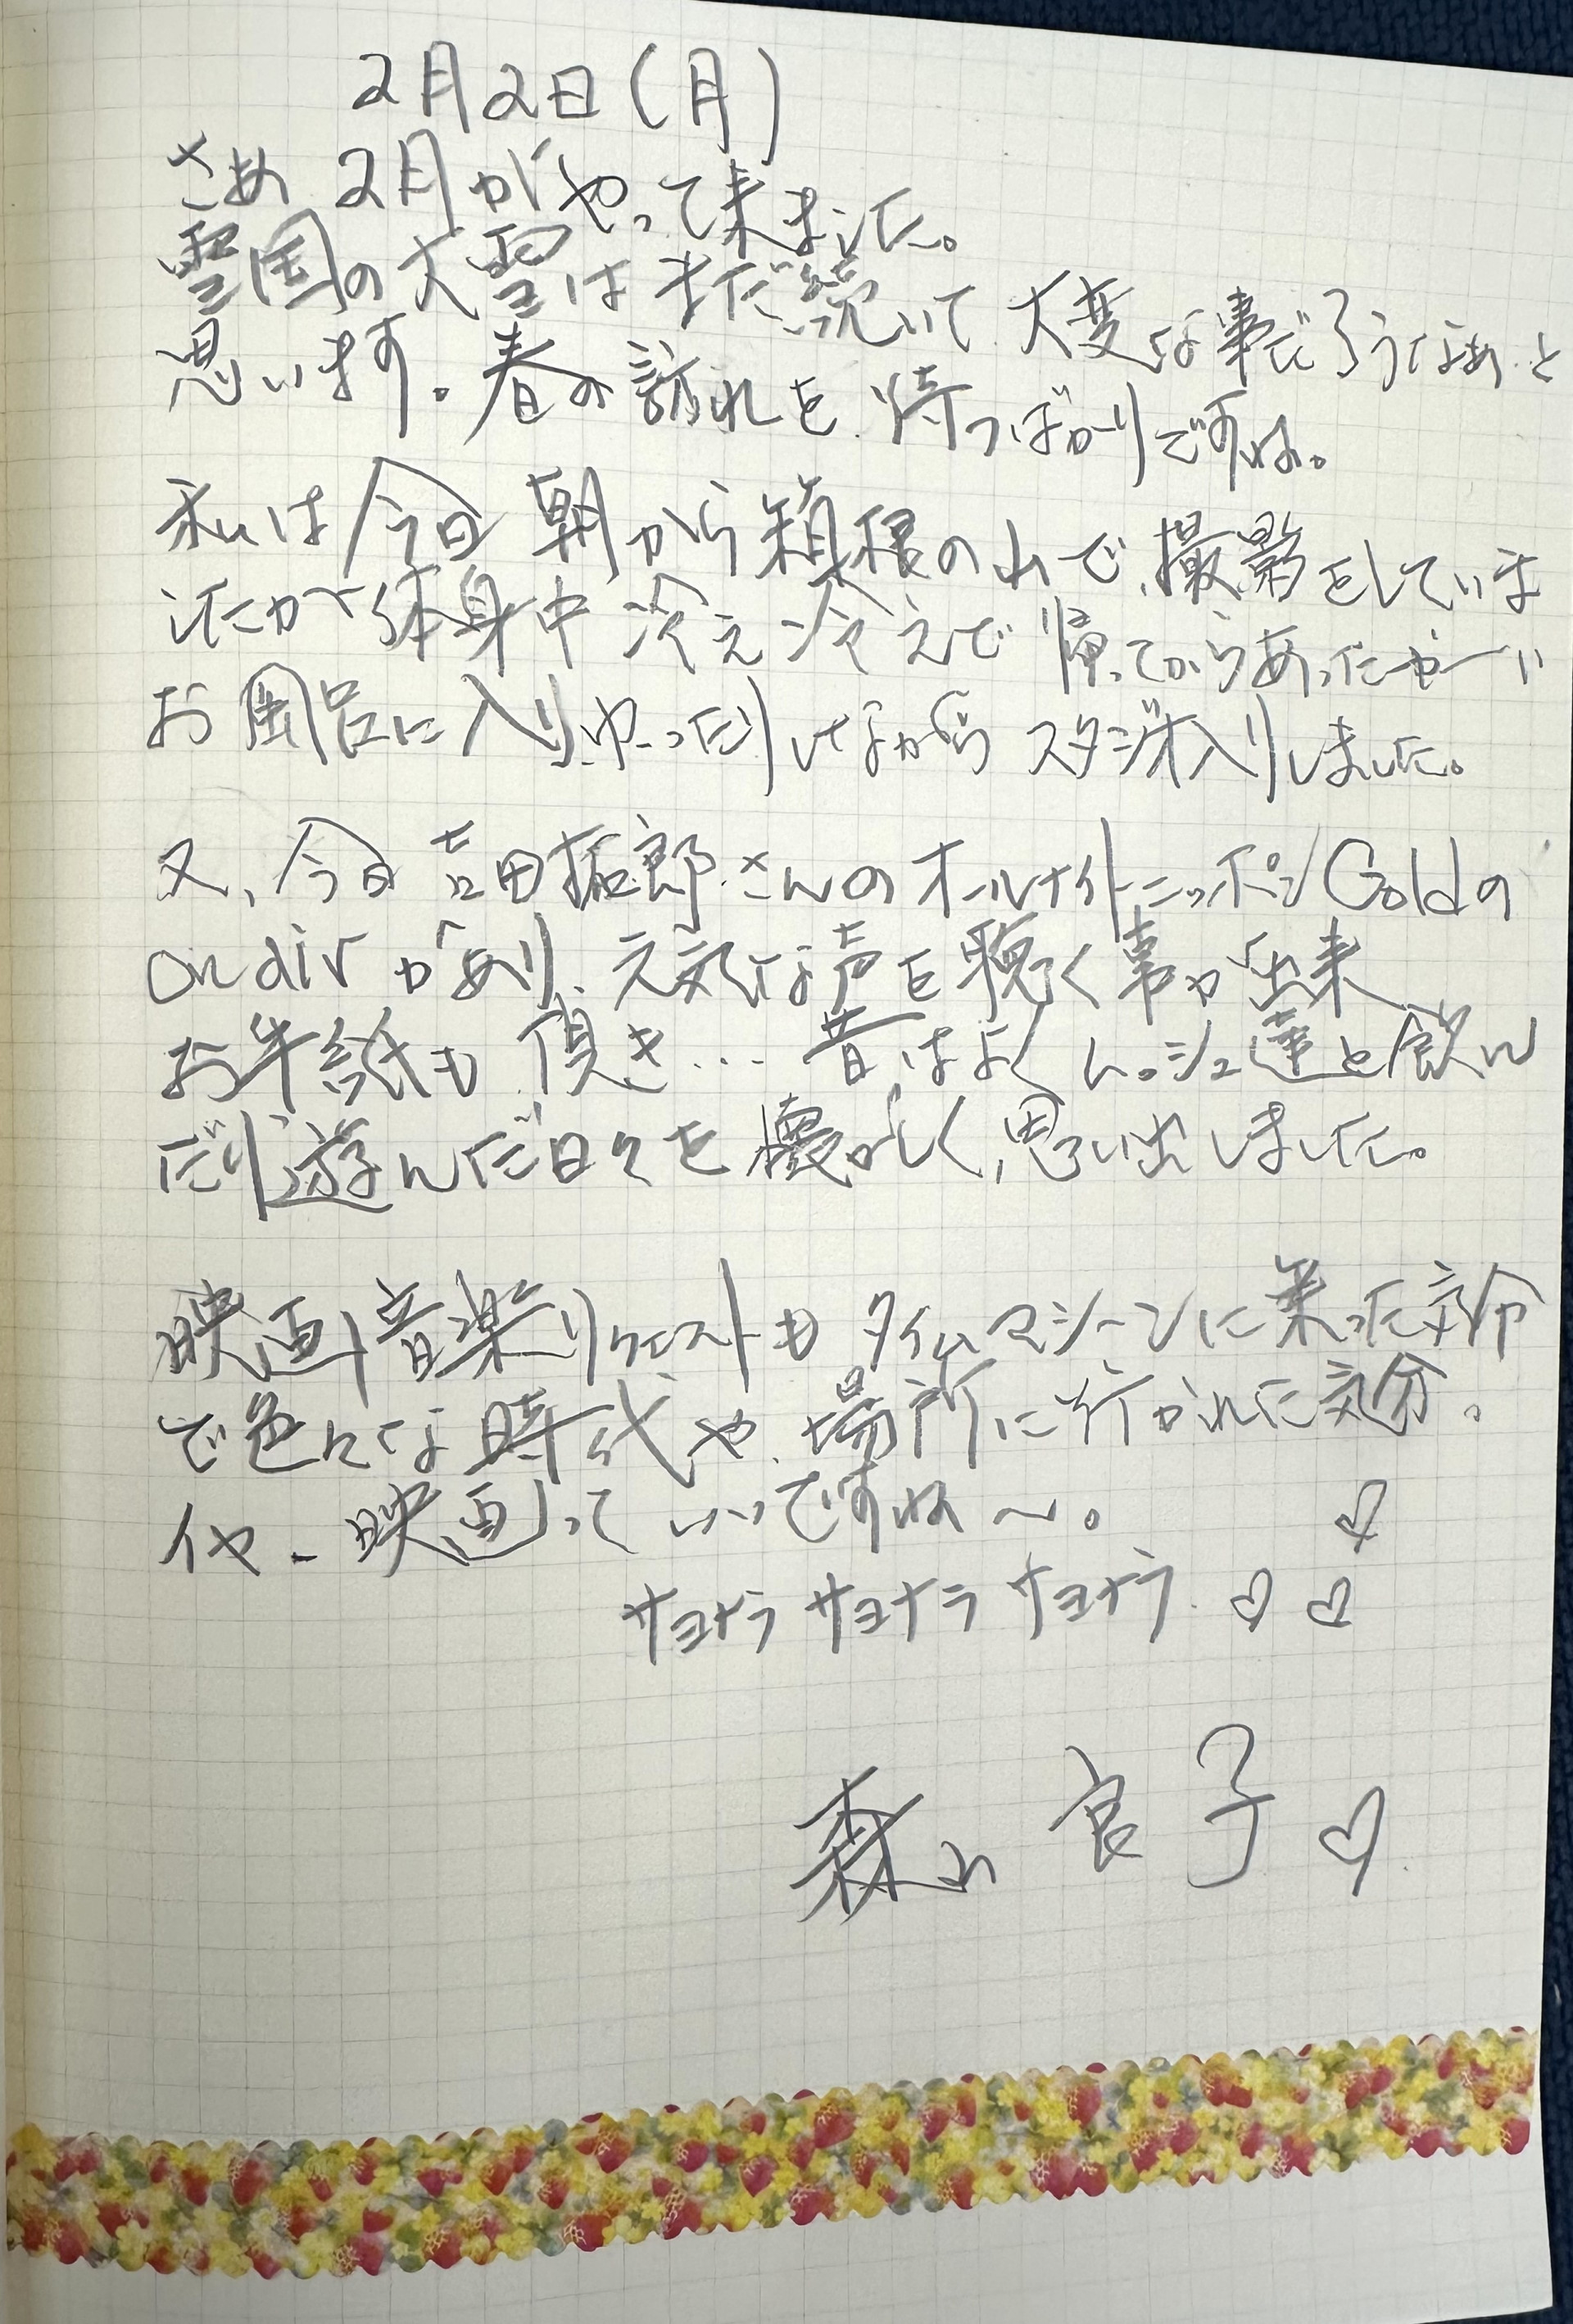 2月2日(月)
さあ 2月がやって来ました。
雪国の大雪はまだ続いて 大変な事だろうなあと
思います。春の訪れを 待つばかりですね。
私は今日 朝から箱根の山で、撮影をしていま
したが 体身中 冷え冷えで 帰ってからあったかーい
お風呂に入り、ゆったりしながら スタジオ入りしました。
又、今日 吉田拓郎さんの オールナイトニッポン Goldの
on air があり、元気な声を聴く事が出来
お手紙も 頂き… 昔はよくムッシュ達と飲ん
だり遊んだ日々を 懐かしく、思い出しました。
映画音楽リクエストも タイムマシーンに乗った気分
で色んな時代や、場所に行かれた気分。
イヤー映画って いいですね〜。
サヨナラ サヨナラ サヨナラ
森山 良子